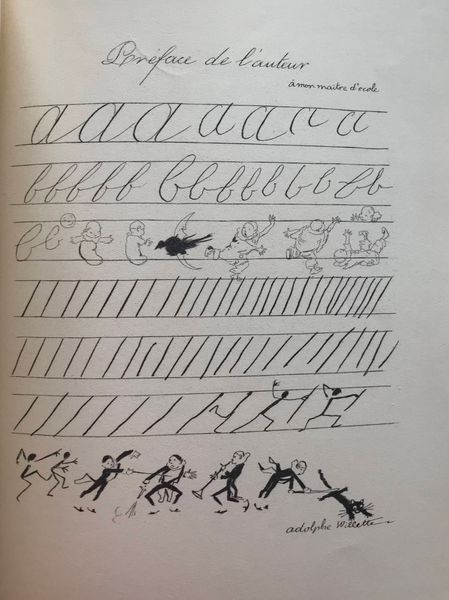 Préface de l'auteur
à mon maître d'école
a a a a a a a a
b b b b b b b b b b b b b b
b b
adolphe Willette